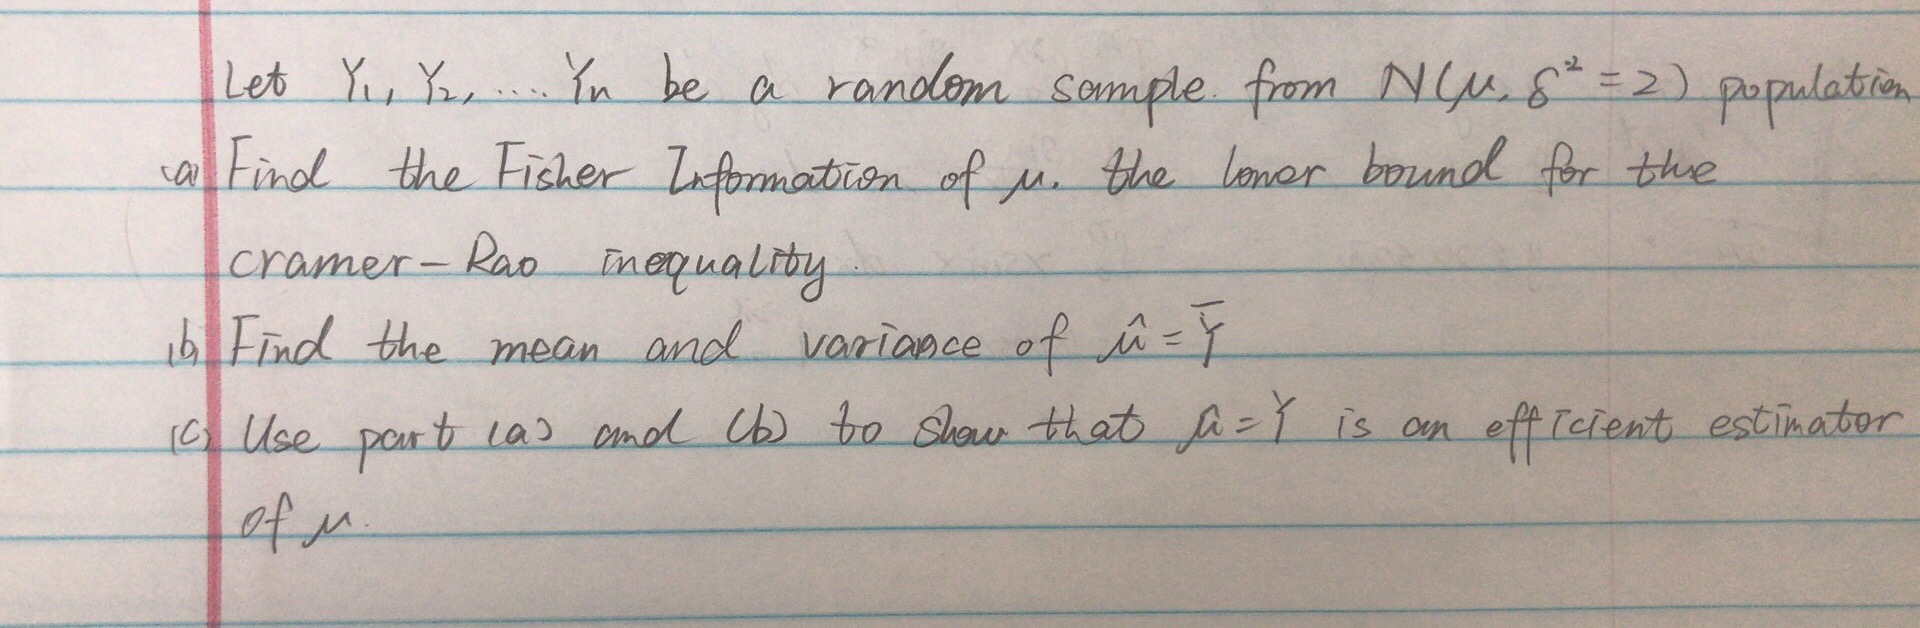 Let Y₁, Y₂, .... Yn be a random sample. from N(μ, δ² = 2) population
(a) Find the Fisher Information of μ. the lower bound for the
cramer-Rao inequality.
(b) Find the mean and variance of μ̂ = Ȳ
(c) Use part (a) and (b) to show that μ̂ = Y is an efficient estimator
of μ.